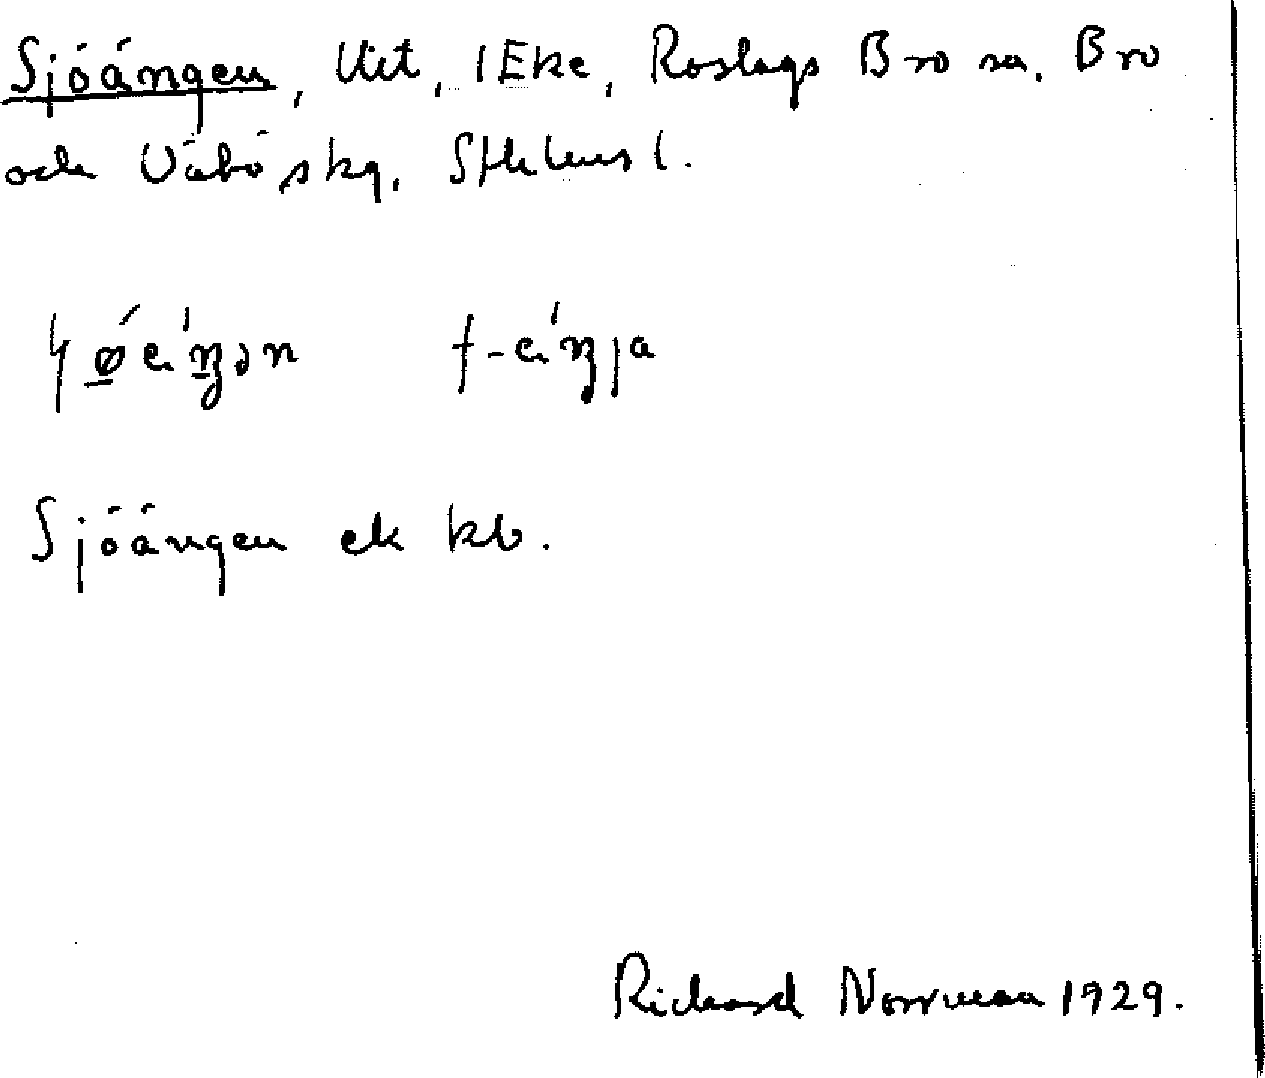 Sjöängen, Vret, i Eke, Roslags Bro sn, Bro
och Väbö skg, Sthlms l.
Sjöängen ek kb.
Rickard Norrman 1929.